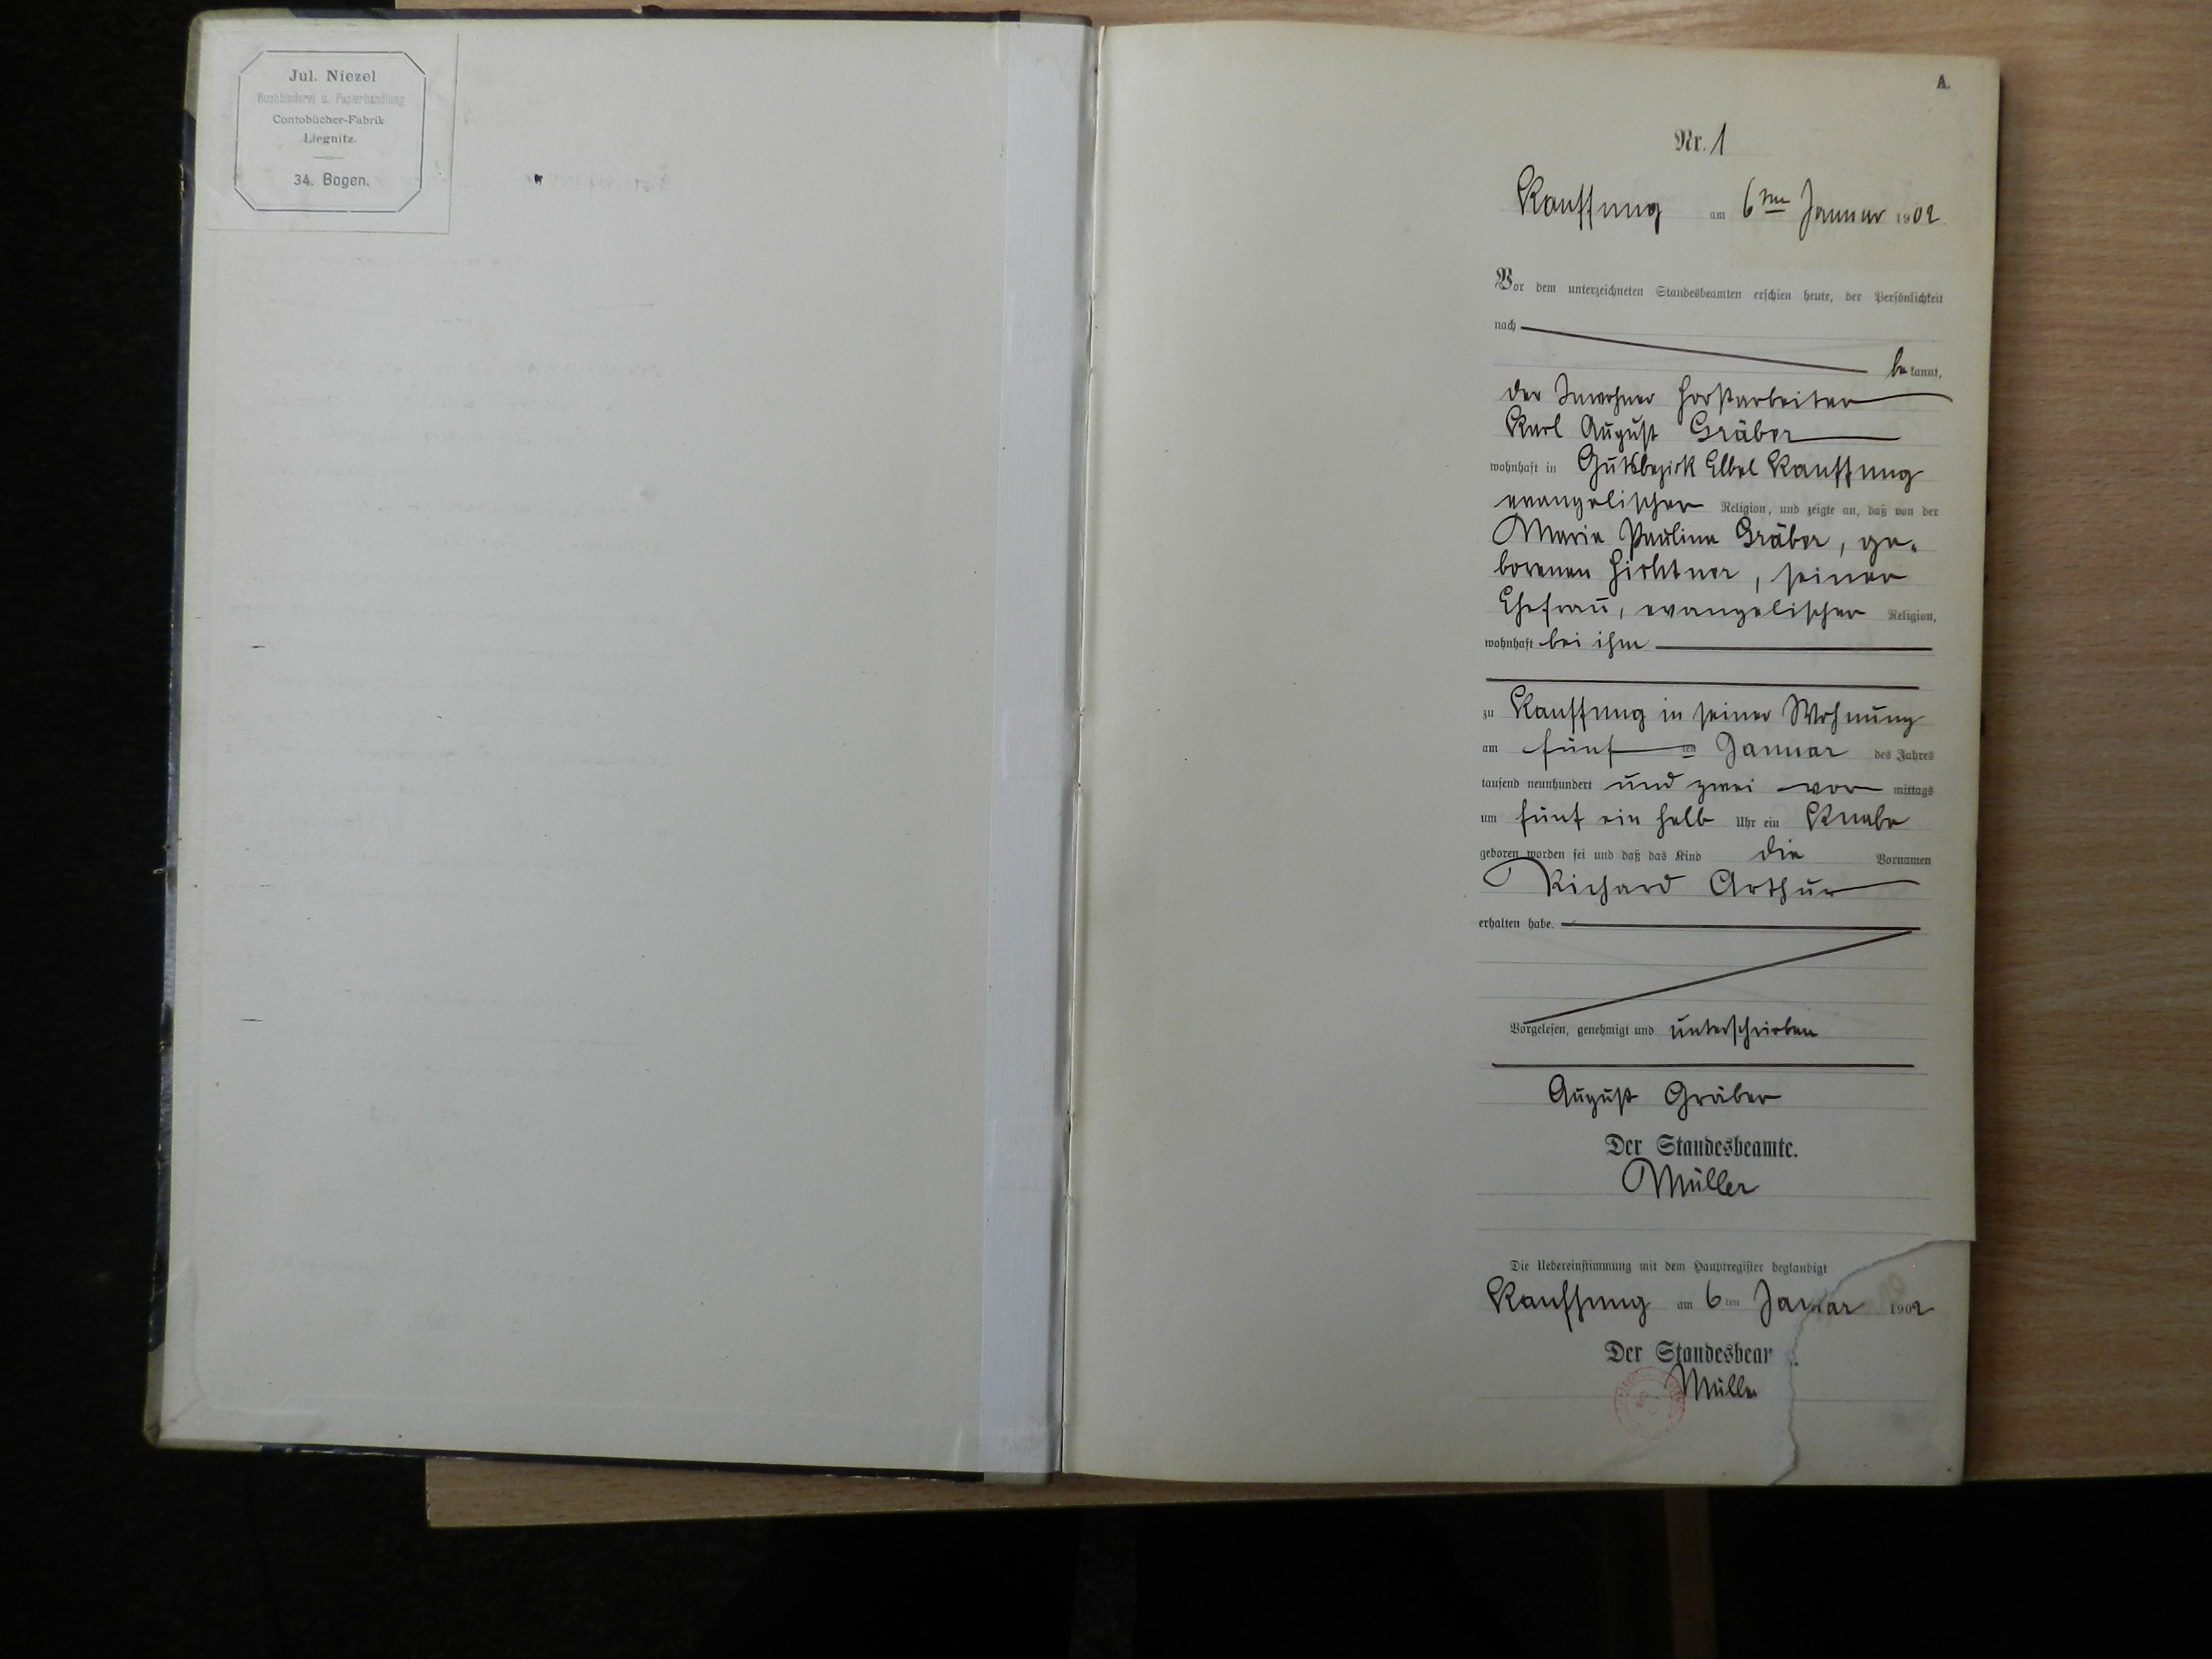 Jul. Niezel
Buchbinderei u. Papierhandlung
Contobücher-Fabrik
Liegnitz.
34. Bogen.
A.
Nr. 1
Kauffung am 6ten Januar 1902.
Vor dem unterzeichneten Standesbeamten erschien heute, der Persönlichkeit
nach
be kannt,
der Inwohner Forstarbeiter
Karl August Gräber
wohnhaft in Gutsbezirk Elbel Kauffung
evangelischer Religion, und zeigte an, daß von der
Marie Pauline Gräber, ge-
borenen, seiner
Ehefrau, evangelischer Religion,
wohnhaft bei ihm
zu Kauffung in seiner Wohnung
am fünf ten Januar des Jahres
tausend neunhundert und zwei vor mittags
um fünf ein halb Uhr ein Knabe
geboren worden sei und daß das Kind die Vornamen
Richard Arthur
erhalten habe.
Vorgelesen, genehmigt und unterschrieben
August Gräber
Der Standesbeamte.
Müller
Die Uebereinstimmung mit dem Hauptregister beglaubigt
Kauffung am 6ten Januar 1902
Der Standesbeam
Müller